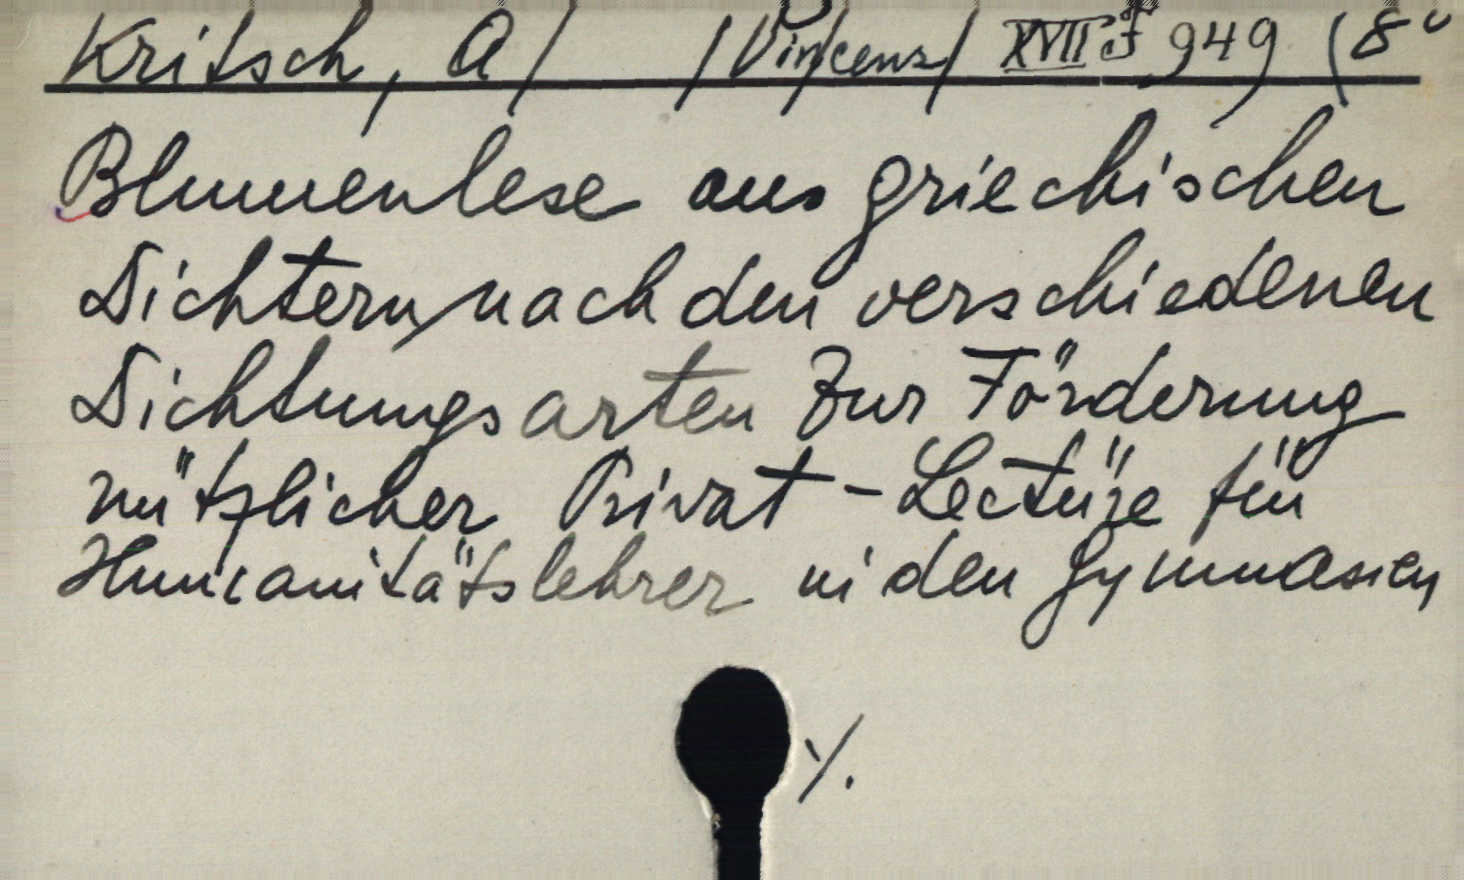 Kritsch, A/ /Vincenz/ XVII J 949 (8°
Blumenlese aus griechischen
Dichtern, nach den verschiedenen
Dichtungsarten zur Förderung
nützlicher Privat-Lectüre für
Humanitätslehrer in den Gymnasien
./.